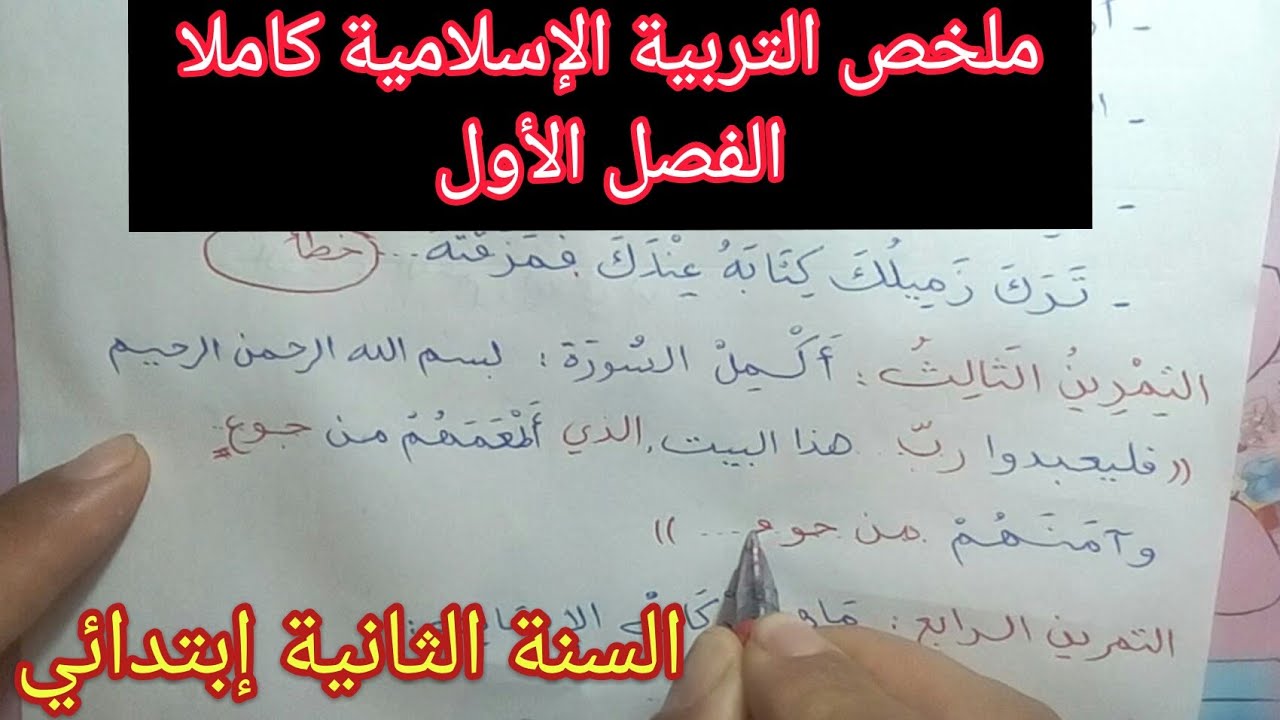 ملخص التربية الإسلامية كاملا
الفصل الأول
- تَرَكَ زَمِيلُكَ كِتَابَهُ عِنْدَكَ فَمَزَّقْتَهُ... خطأ
التمْرِينُ الثَالِثُ : أَكْمِلْ السُورَة : بسم الله الرحمن الرحيم
(( فليعبدوا ربّ هذا البيت الذي أَطْعَمَهُمْ من جوعٍ
وآمَنَهُمْ من خو... ))
التمرين الرابع :
السنة الثانية إبتدائي